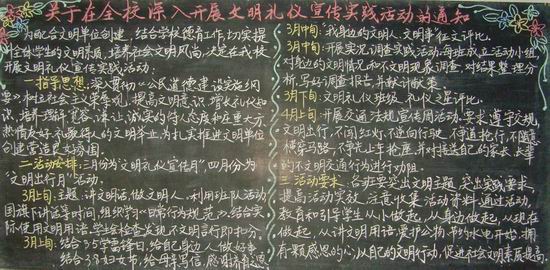 关于在全校深入开展文明礼仪宣传实践活动的通知
为配合文明单位创建，结合学校德育工作，切实提
高全体学生的文明素质，培养社会文明风尚，决定在我校
开展文明礼仪宣传实践活动。
一.指导思想：深入贯彻《公民道德建设实施纲
要》和社会主义荣辱观，提高文明意识，增长礼仪知
识，培养理解、宽容、谦让、诚实的待人态度和庄重大方、
热情友好、礼貌待人的文明举止，为扎实推进文明单位
创建营造更好氛围。
二.活动安排：三月份为"文明礼仪宣传月"，四月份为
"文明出行月"活动：
3月上旬：主题：讲文明话，做文明人。利用班队活动
国旗下讲话等时间，组织学习日常行为规范，结合实
际使用文明用语，学生检查发现不文明言行即扣分。
3月上旬：结合3·5学雷锋日，给自己身边人做好事
结合3·8妇女节，给母亲写信，感谢培育之恩
3月中旬：我身边的文明人、文明事征文评比。
3月中旬：开展实况调查实践活动，每班成立活动小组，
对身边的文明情况和不文明现象调查，对结果整理分
析，写好调查报告，并献计献策。
3月下旬：文明礼仪班级、礼仪之星评比。
4月上旬：开展交通法规宣传周活动。要求遵守交规，
文明出行，不闯红灯、不逆向行驶、不弯道抢行，不随意
横穿马路，不争先上车抢座，并对接送自己的家长、亲幸
的不文明交通行为进行劝阻。
三.活动要求：各班要突出文明主题，突出实践要求，
提高活动实效，注意收集活动资料。通过活动，
教育和引导学生从小做起，从身边做起，从现在
做起，从讲文明用语，爱护公物，节约水电开始，拥
有颗感恩的心，以自己的文明行动，促进社会文明素质提高。